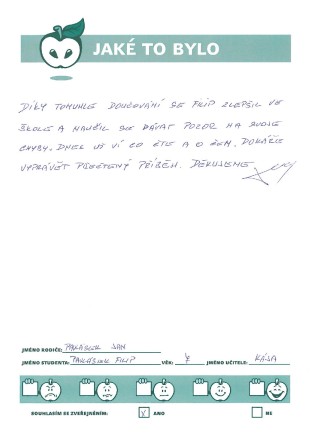 JAKÉ TO BYLO
DÍKY TOMUHLE DOUČOVÁNÍ SE FILIP ZLEPŠIL VE
ŠKOLE A NAUČIL SE DÁVAT POZOR NA SVOJE
CHYBY. DNES UŽ VÍ CO ČTE A O ČEM. DOKÁŽE
VYPRÁVĚT PŘEČTENÝ PŘÍBĚH. DĚKUJEME
JMÉNO RODIČE: JAN
JMÉNO STUDENTA: FILIP VĚK: 7 JMÉNO UČITELE: KÁJA
SOUHLASÍM SE ZVEŘEJNĚNÍM: X ANO NE